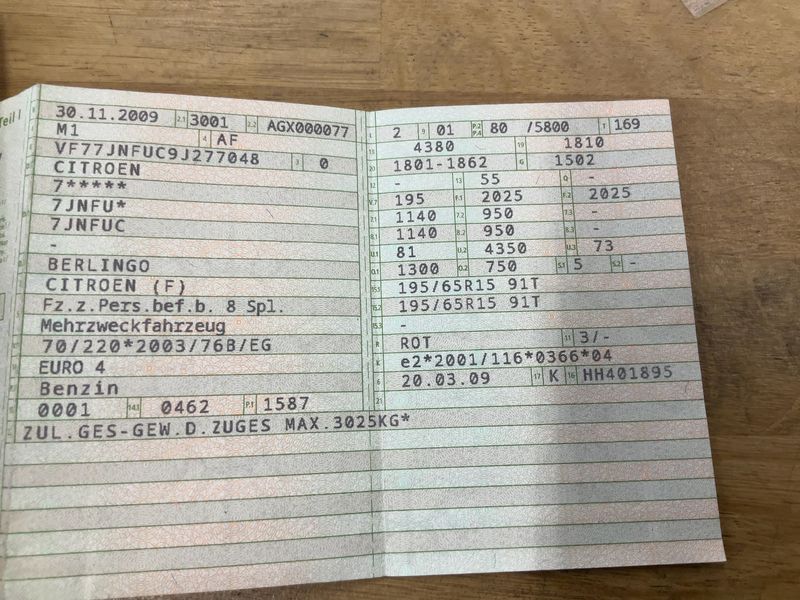 Teil I
30.11.2009 2.1 3001 2.2 AGX000077
M1 4 AF
VF77JNFUC9J277048 3 0
CITROEN
7*****
7JNFU*
7JNFUC
-
BERLINGO
CITROEN (F)
Fz.z.Pers.bef.b. 8 Spl.
Mehrzweckfahrzeug
70/220*2003/76B/EG
EURO 4
Benzin
0001 14.1 0462 P.1 1587
ZUL.GES-GEW.D.ZUGES MAX.3025KG*
L 2 9 01 P.2 P.4 80 /5800 T 169
18 4380 19 1810
20 1801-1862 G 1502
- 13 55 Q -
V.7 195 F.1 2025 F.2 2025
7.1 1140 7.2 950 7.3 -
8.1 1140 8.2 950 8.3 -
U.1 81 U.2 4350 U.3 73
O.1 1300 O.2 750 S.1 5 S.2 -
15.1 195/65R15 91T
15.2 195/65R15 91T
15.3 -
R ROT 11 3/-
K e2*2001/116*0366*04
6 20.03.09 17 K 16 HH401895
21